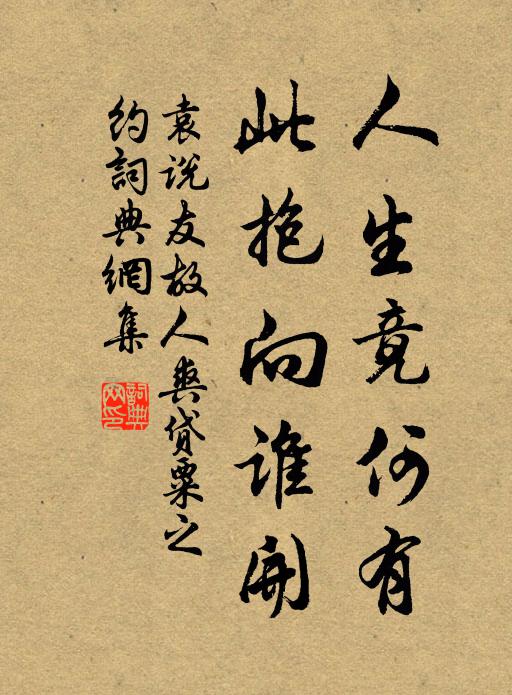 人生竟何有
此抱向谁開
袁说友故人爽貸粟之
約詞典網集
詞典
网印